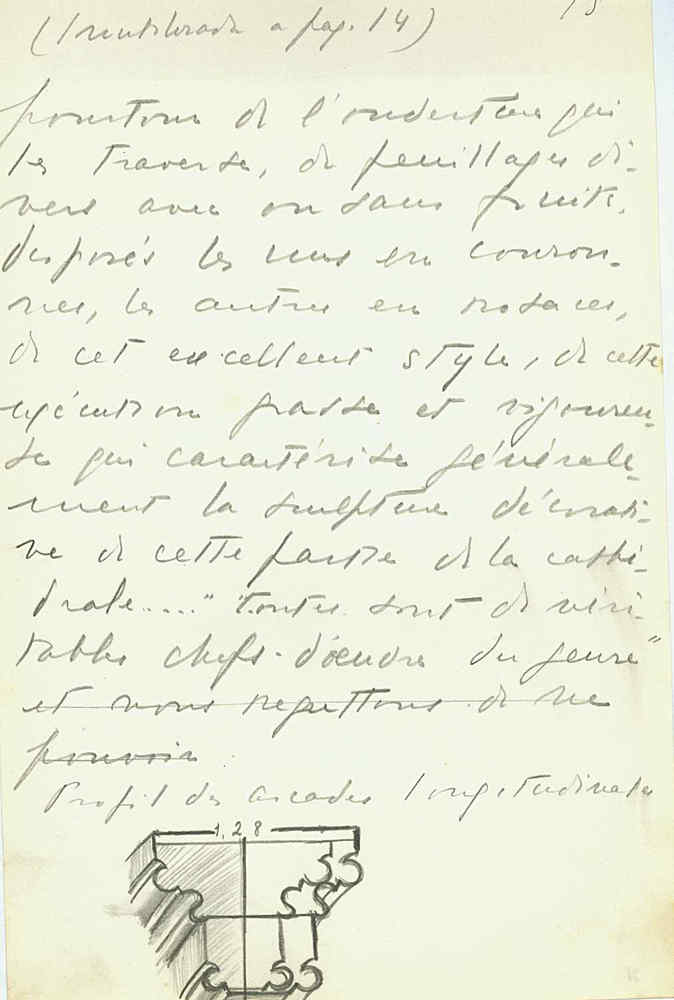 15
a pag. 14)
de l'ouverture qui
les traverse, de feuillages di-
vers avec ou sans fruits,
disposés les uns en couron-
nes, les autres en rosaces,
de cet excellent style, de cette
exécution grasse et vigoureu-
se qui caractérise générale-
ment la sculpture décorati-
ve de cette partie de la cathé-
drale....." "Toutes sont de véri-
tables chefs-d'œuvre du genre"
et nous regrettons de ne
pouvoir
Profil des arcades longitudinales
1,28